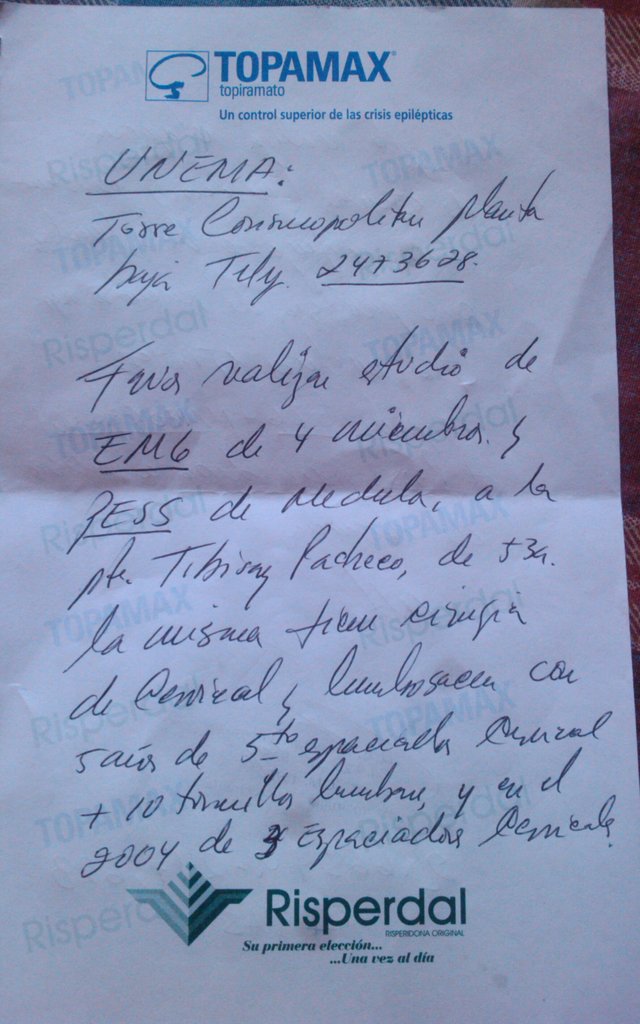 TOPAMAX®
topiramato
Un control superior de las crisis epilépticas
UNEMA:
Torre Cosmopolitan planta
baja Telf. 2473628.
Favor realizar estudio de
EMG de 4 miembros y
PESS de Medula, a la
pte. Tibisay Pacheco, de 53a.
la misma tiene cirugia
de Cervical y lumbosacra con
5 años de 5to espaciador Cervical
+ 10 tornillos lumbar, y en el
2004 de 3 Espaciadores Cervicales
Risperdal
RISPERIDONA ORIGINAL
Su primera elección...
...Una vez al día